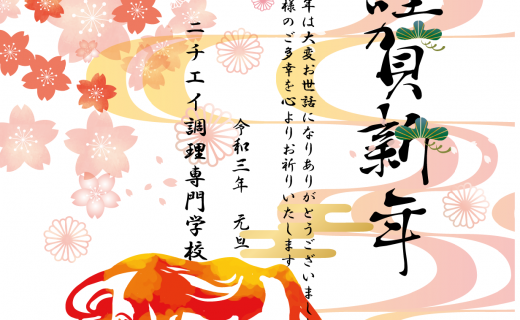 謹賀新年
年は大変お世話になりありがとうございまし
様のご多幸を心よりお祈りいたします
令和三年 元旦
ニチエイ調理専門学校